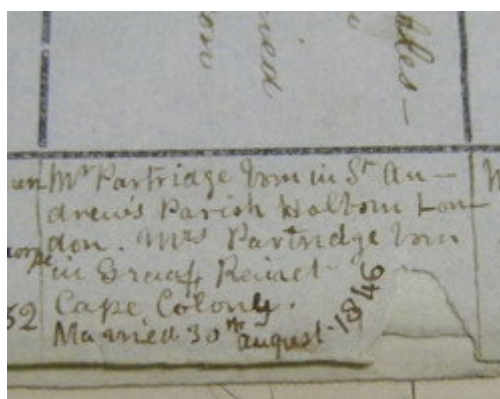 ales-
ied
on
un Mr Partridge born in St An-
drew's Parish Holborn Lon-
don. Mrs Partridge born
in Graaf Reinet
52 Cape Colony.
Married 30th August. 1846